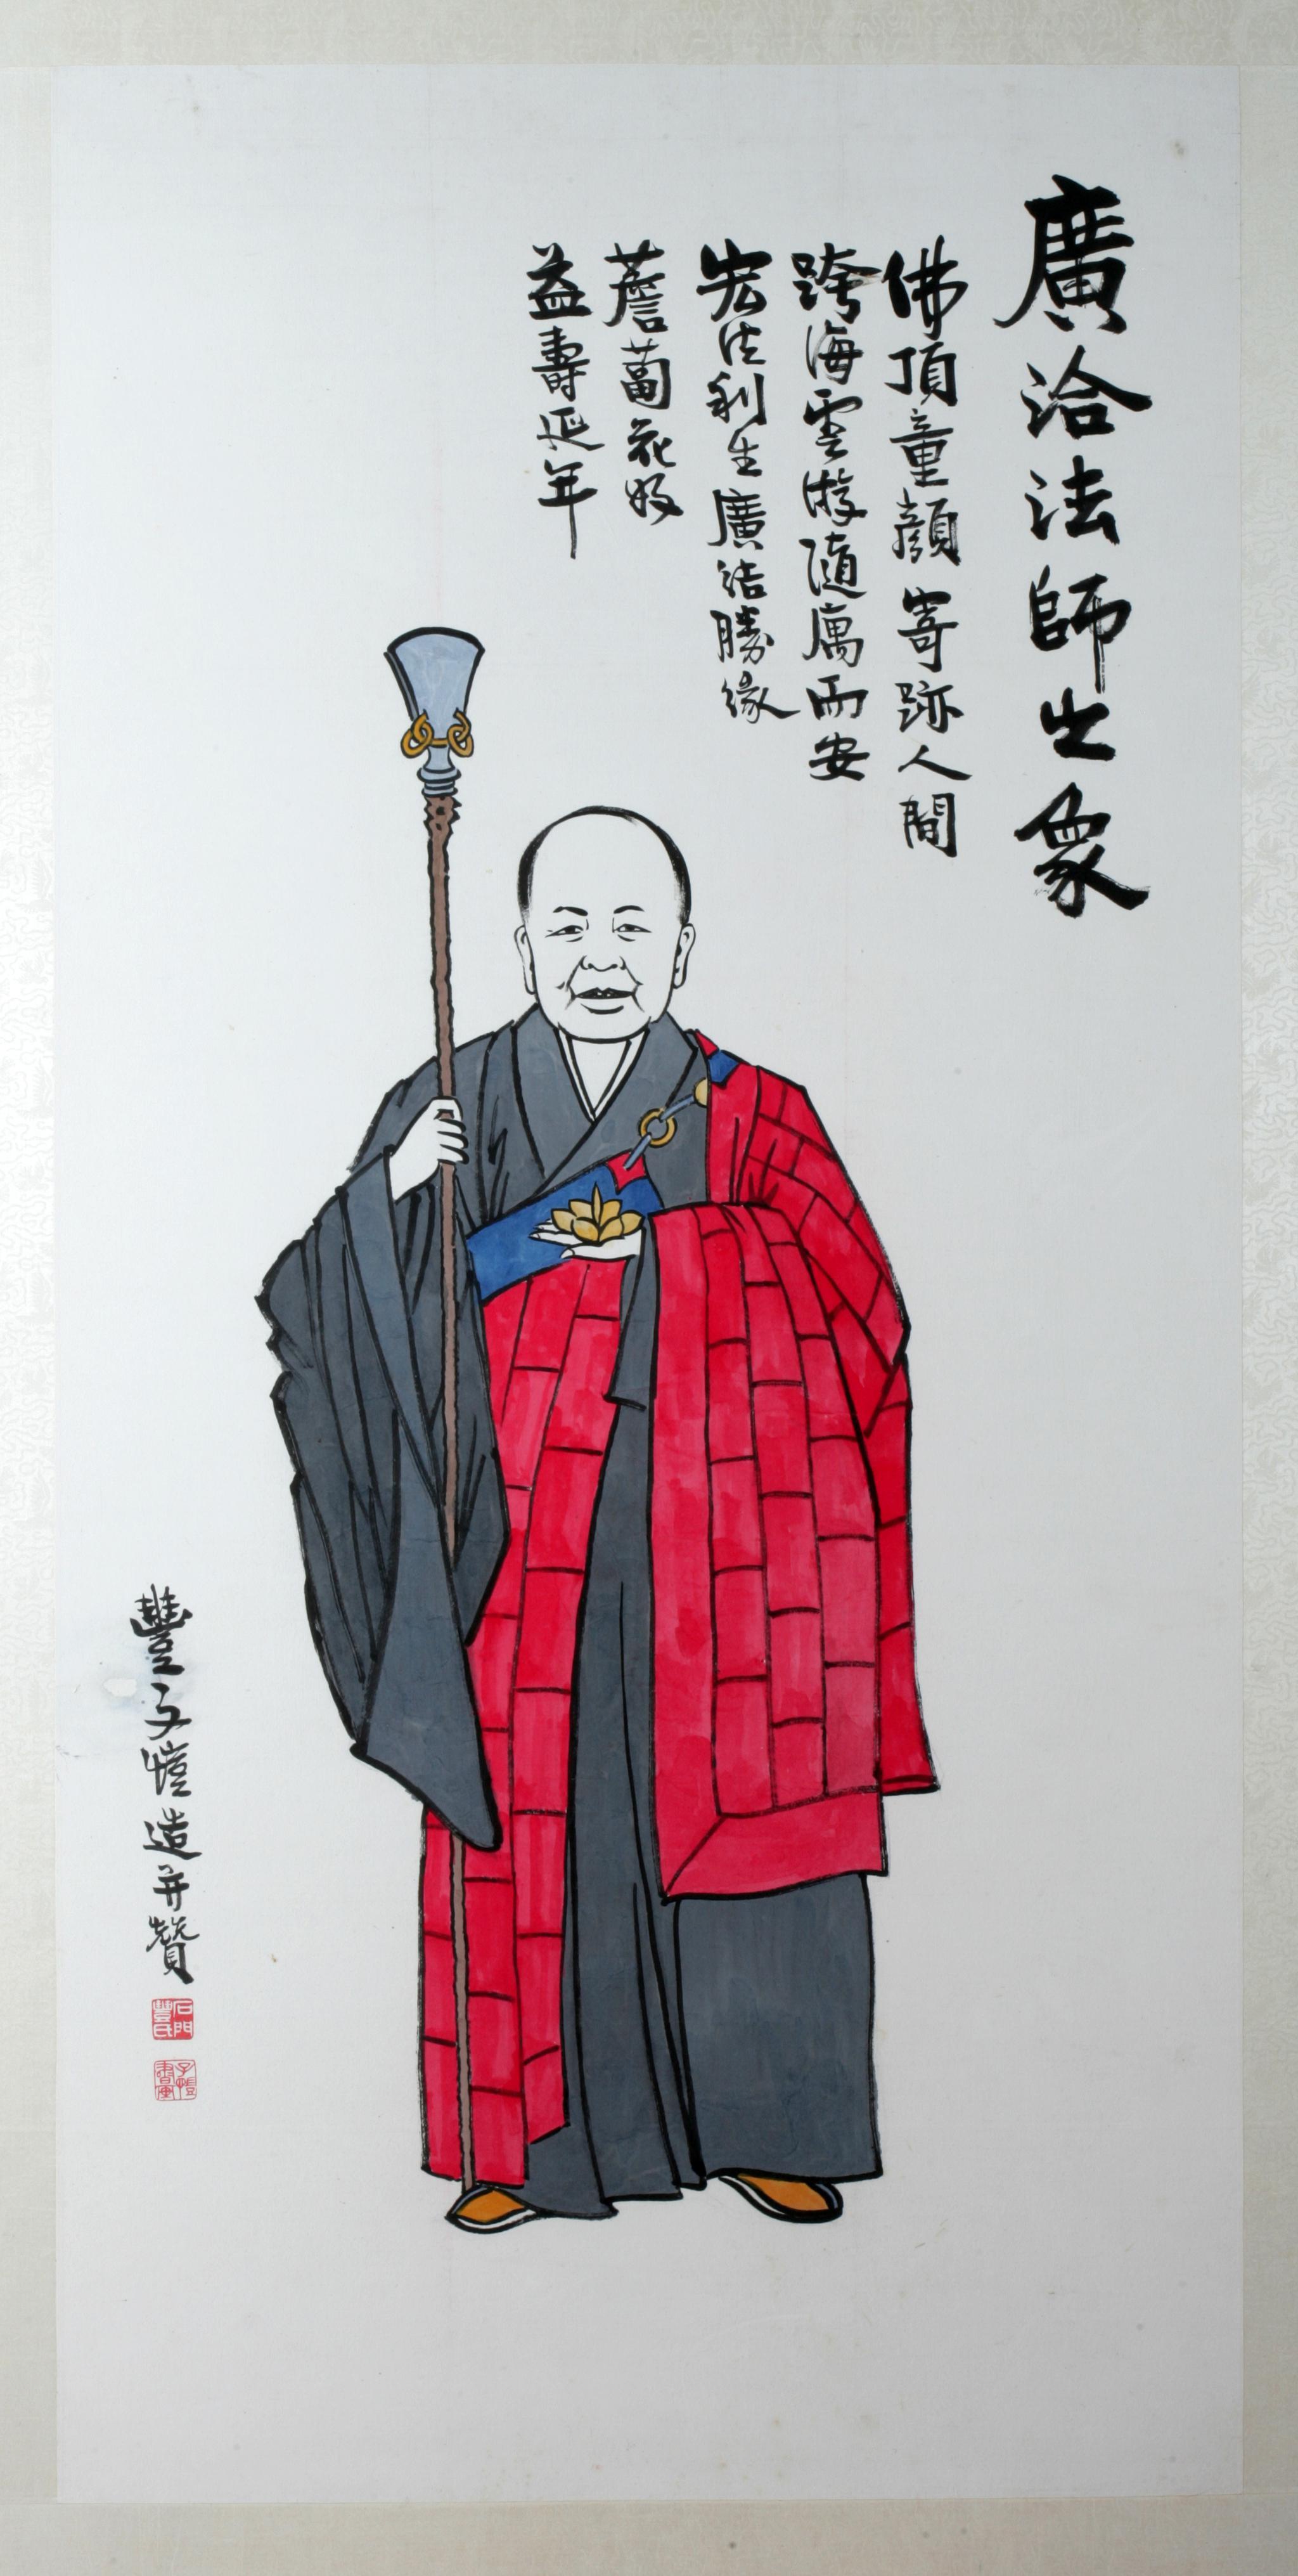 廣洽法師之象
佛頂童顏寄跡人間
跨海雲游隨寓而安
宏法利生廣結勝緣
薝蔔花好
益壽延年
豐子愷造并贊
石門豐氏
子愷書畫